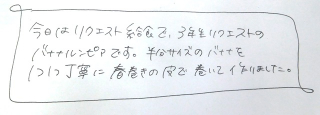 今日はリクエスト給食で、3年生リクエストの
バナナルンピアです。半分サイズのバナナを
1つ1つ丁寧に春巻きの皮で巻いて作りました。